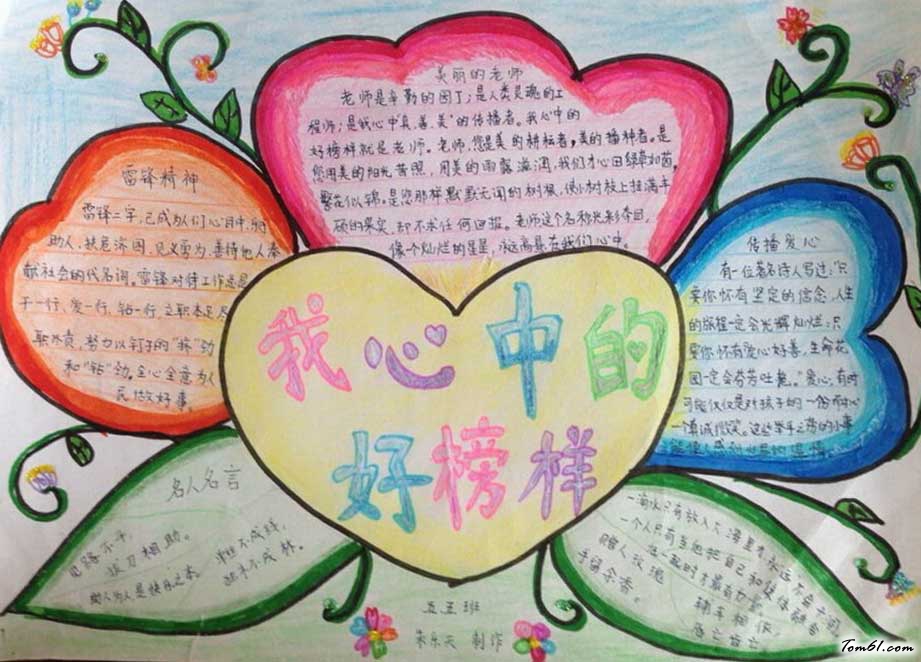 我心中的
好榜样
美丽的老师
老师是辛勤的园丁;是人类灵魂的工
程师;是我心中真、善、美的传播者。我心中的
好榜样就是老师。老师,您是美的耕耘者,美的播种者。是
您用美的阳光普照,用美的雨露滋润,我们才心田绿草如茵,
繁花似锦。是您那样默默无闻的树根,使小树枝上挂满丰
硕的果实,却不求任何回报。老师这个名称光彩夺目,
像个灿烂的星星,永远高悬在我们心中。
雷锋精神
雷锋二字,已成为人们心目中,
助人,扶危济困,见义勇为,善待他人奉
献社会的代名词。雷锋对待工作总是
干一行、爱一行、钻一行,立职本足尽
职尽责,努力以钉子的"挤"劲
和"钻"劲。全心全意为人
民做好事。
传播爱心
有一位著名诗人写过:"只
要你怀有坚定的信念,人生
的旅程一定会光辉灿烂,只
要你怀有爱心好善,生命花
园一定会芬芳吐艳。"爱心,有时
可能仅仅是对孩子的一份
一个真诚微笑。这些举手之劳的小事
名人名言
路不平,
拔刀相助。
助人为人是快乐之本。
单丝不成线,
独木不成林。
一滴水只有放入大海里才永远不会干
一个人只有当他把自己和集体融合
在一起时才最有力量。
赠人玫瑰
手留余香。
辅车相依,
唇亡齿寒。
五五班
朱乐天 制作
Tom61.com